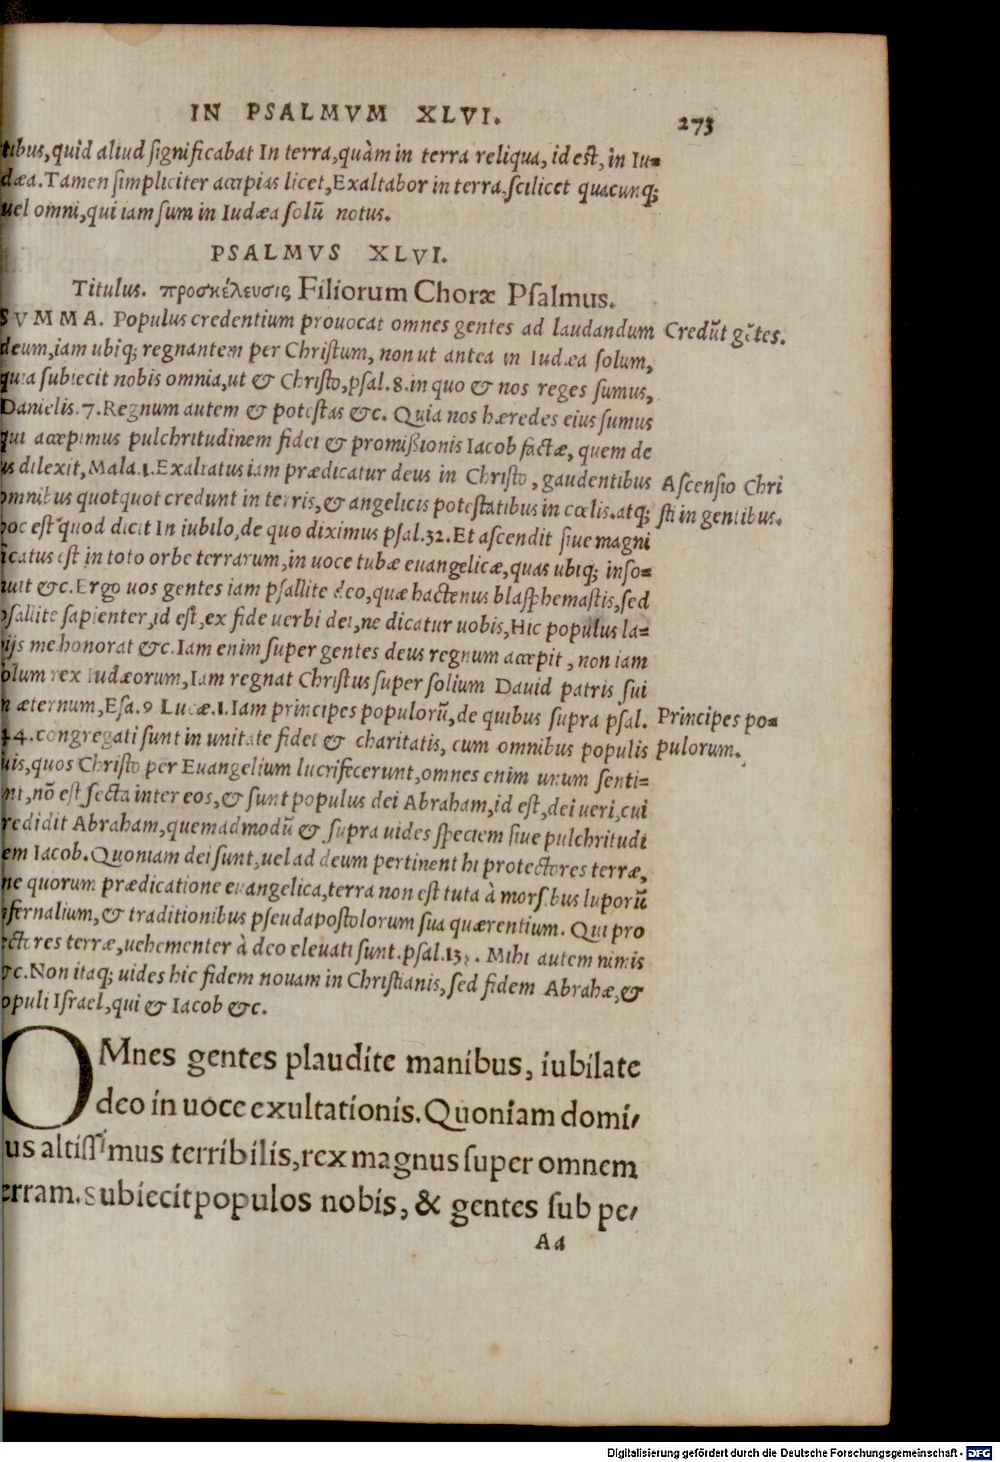 IN PSALMVM XLVI. 273
tibus,quid aliud significabat In terra,quàm in terra reliqua, id est, in Iu=
dæa.Tamen simpliciter accipias licet,Exaltabor in terra,scilicet quacunq;
uel omni,qui iam sum in Iudæa solū notus.
PSALMVS XLVI.
Titulus. προσκέλευσις Filiorum Choræ Psalmus.
SVMMA. Populus credentium prouocat omnes gentes ad laudandum
Credūt gētes.
deum,iam ubiq; regnantem per Christum, non ut antea in Iudæa solum,
quia subiecit nobis omnia,ut & Christo,psal.8.in quo & nos reges sumus,
Danielis.7.Regnum autem & potestas &c. Quia nos hæredes eius sumus
qui accepimus pulchritudinem fidei & promissionis Iacob factæ, quem de
us dilexit,Mala.1.Exaltatus iam prædicatur deus in Christo, gaudentibus
Ascensio Chri
omnibus quotquot credunt in terris,& angelicis potestatibus in cœlis.atq;
sti in gentibus.
hoc est quod dicit In iubilo,de quo diximus psal.32.Et ascendit siue magni
ficatus est in toto orbe terrarum,in uoce tubæ euangelicæ,quas ubiq; inso=
nuit &c.Ergo uos gentes iam psallite deo,quæ hactenus blasphemastis,sed
psallite sapienter,id est,ex fide uerbi dei,ne dicatur uobis,Hic populus la=
bijs me honorat &c.Iam enim super gentes deus regnum accepit, non iam
solum rex Iudæorum,Iam regnat Christus super solium Dauid patris sui
in æternum,Esa.9 Lucæ.1.Iam principes populorū,de quibus supra psal.
Principes po=
44.congregati sunt in unitate fidei & charitatis, cum omnibus populis
pulorum.
suis,quos Christo per Euangelium lucrifecerunt,omnes enim unum senti=
unt,nō est secta inter eos,& sunt populus dei Abraham,id est,dei ueri,cui
credidit Abraham,quemadmodū & supra uides speciem siue pulchritudi
nem Iacob.Quoniam dei sunt,uel ad deum pertinent hi protectores terræ,
sine quorum prædicatione euangelica,terra non est tuta à morsibus luporū
infernalium,& traditionibus pseudapostolorum sua quærentium. Qui pro
tectores terræ,uehementer à deo eleuati sunt.psal.13. Mihi autem nimis
&c.Non itaq; uides hic fidem nouam in Christianis,sed fidem Abrahæ,&
populi Israel,qui & Iacob &c.
OMnes gentes plaudite manibus, iubilate
deo in uoce exultationis.Quoniam domi/
nus altissimus terribilis,rex magnus super omnem
terram.subiecit populos nobis, & gentes sub pe/
Aa
Digitalisierung gefördert durch die Deutsche Forschungsgemeinschaft - DFG